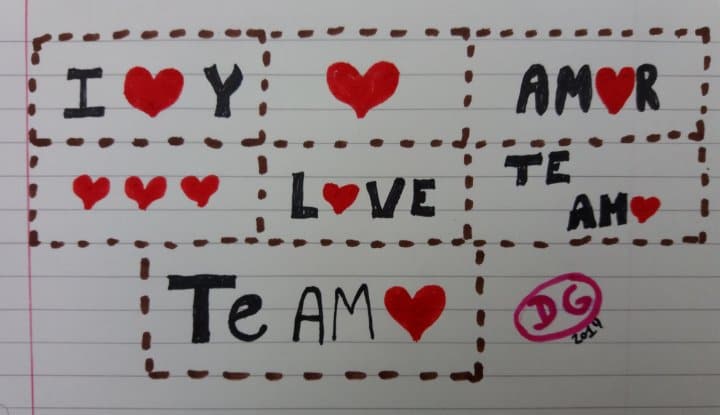 I ❤ Y
AM❤R
L❤VE
TE
AM❤
Te AM❤
DG
2014